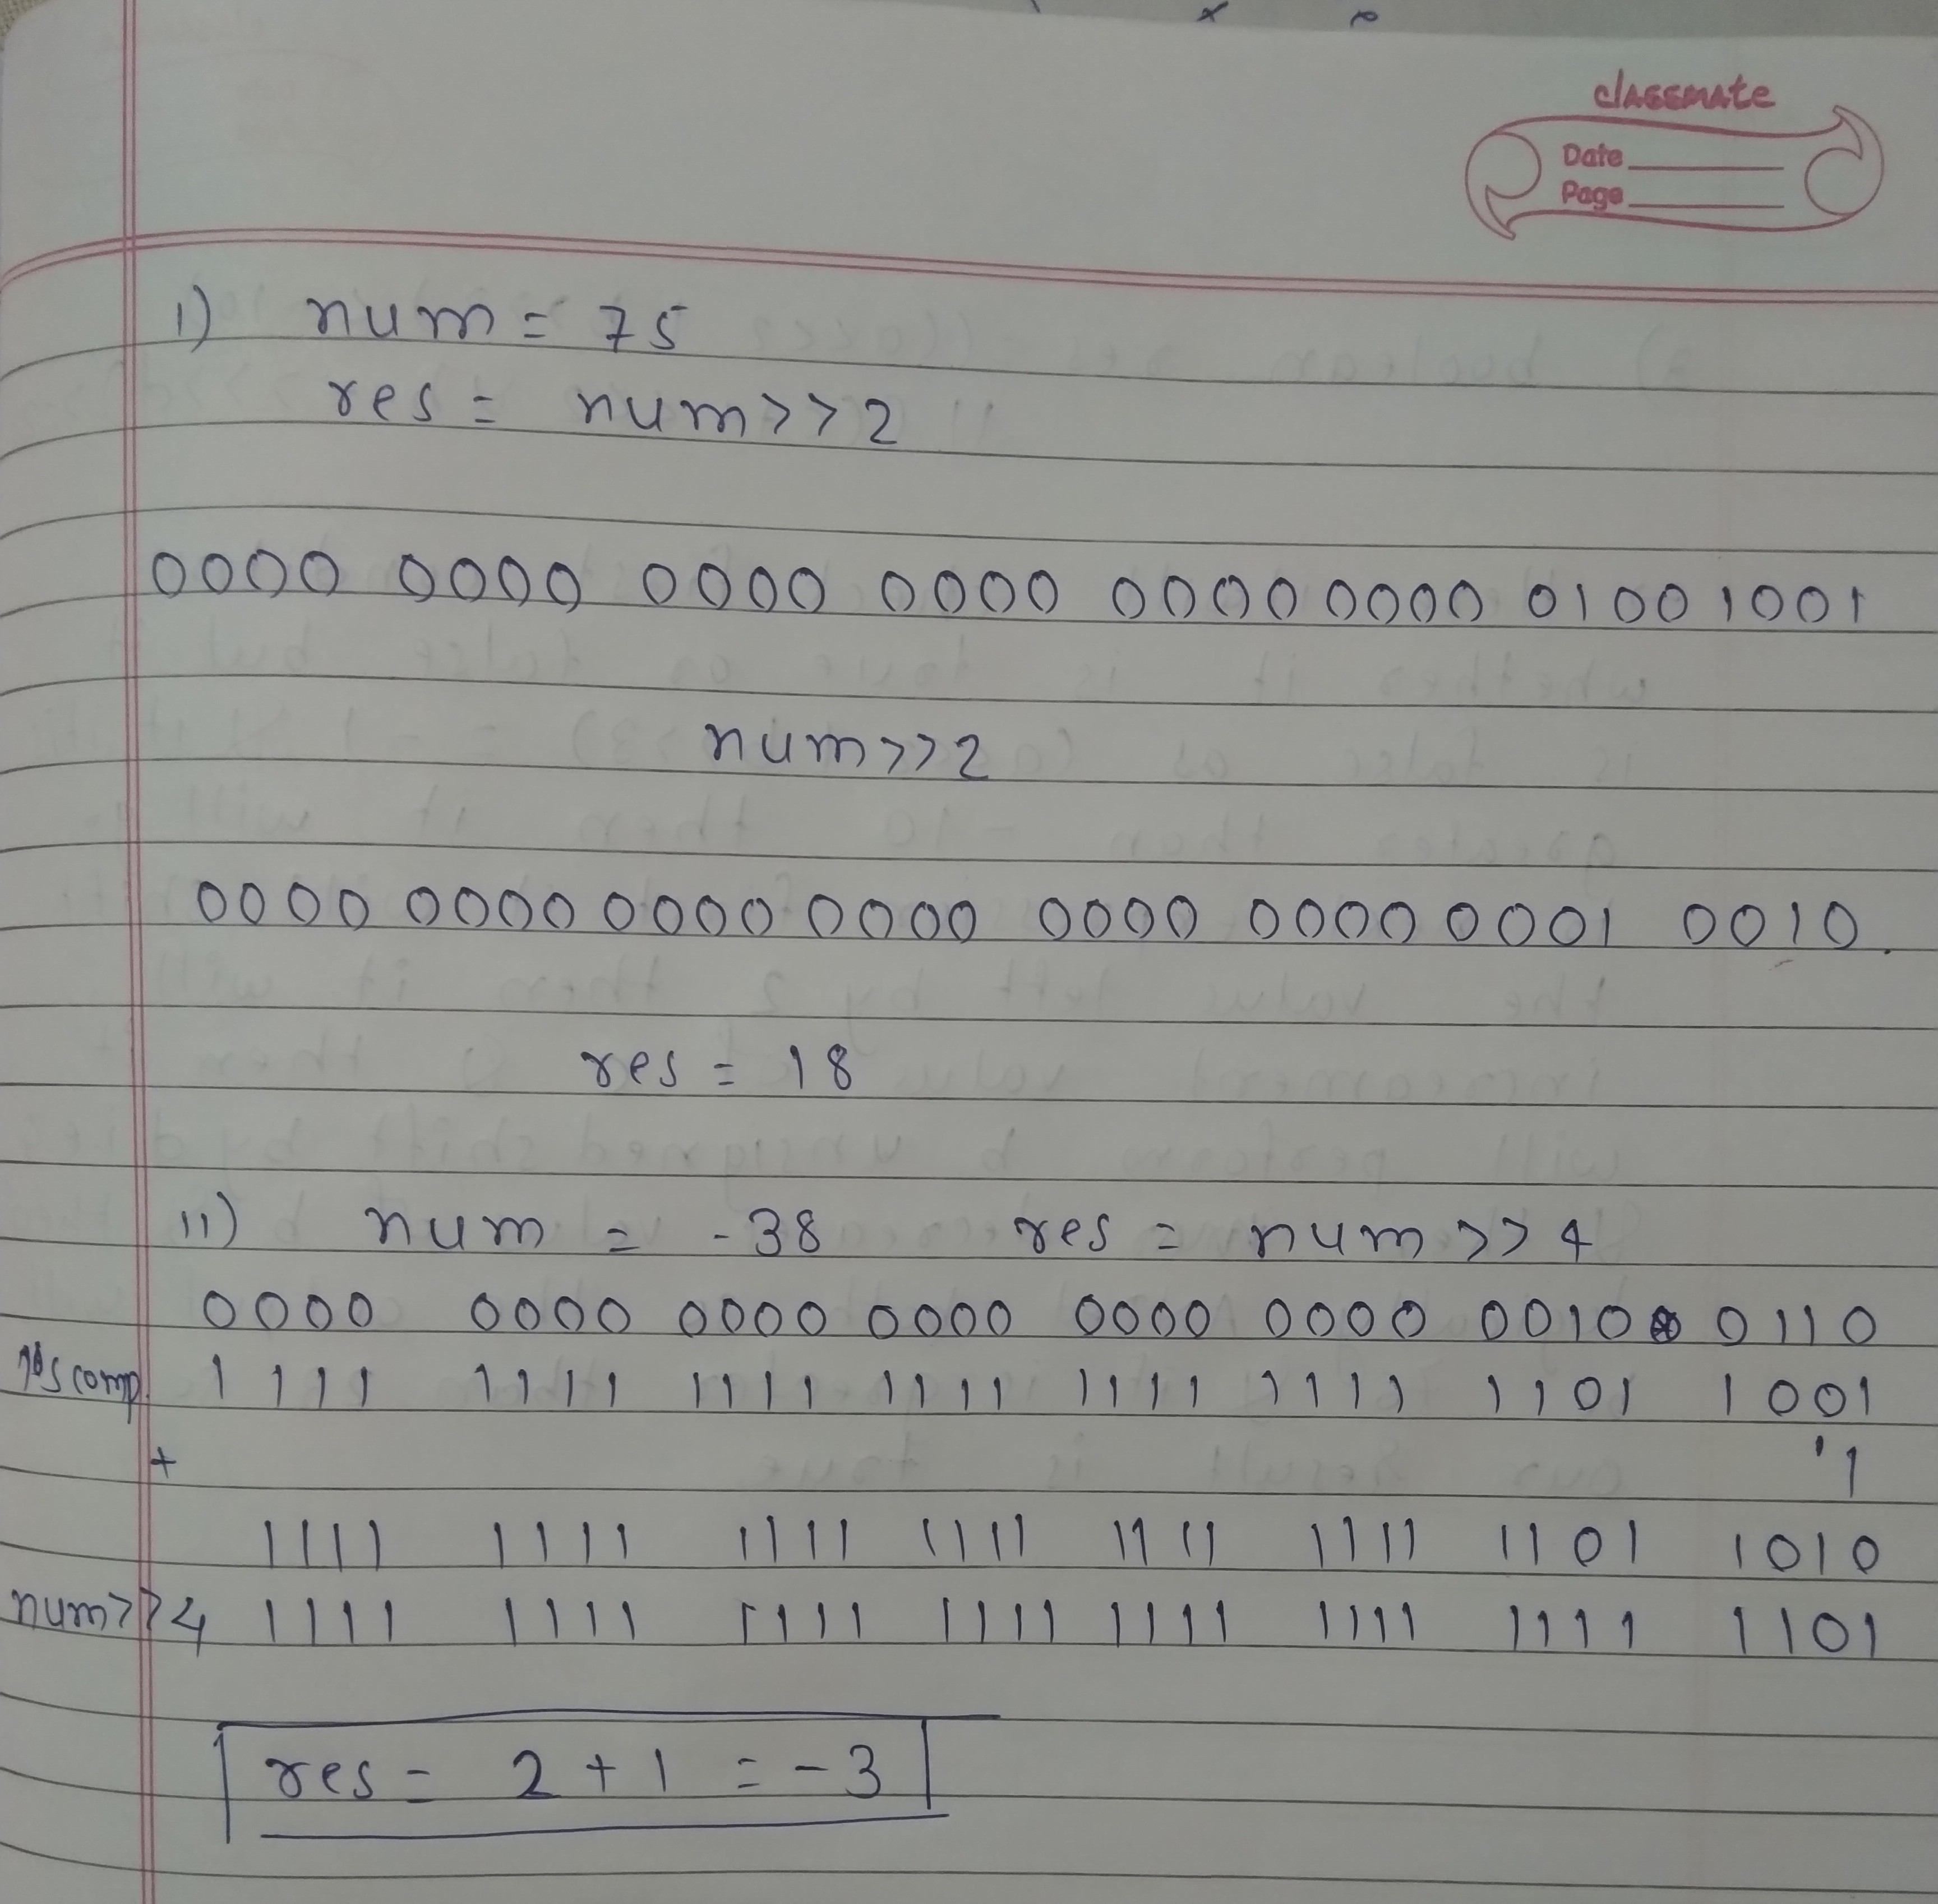 classmate
Date
Page
1) num = 75
res = num >> 2
0000 0000 0000 0000 0000 0000 0100 1001
num >> 2
0000 0000 0000 0000 0000 0000 0001 0010.
res = 18
11) num = -38 res = num >> 4
0000 0000 0000 0000 0000 0000 0010 0110
1's comp. 1111 1111 1111 1111 1111 1111 1101 1001
+ 1
1111 1111 1111 1111 1111 1111 1101 1010
num >> 4 1111 1111 1111 1111 1111 1111 1111 1101
res = 2 + 1 = -3